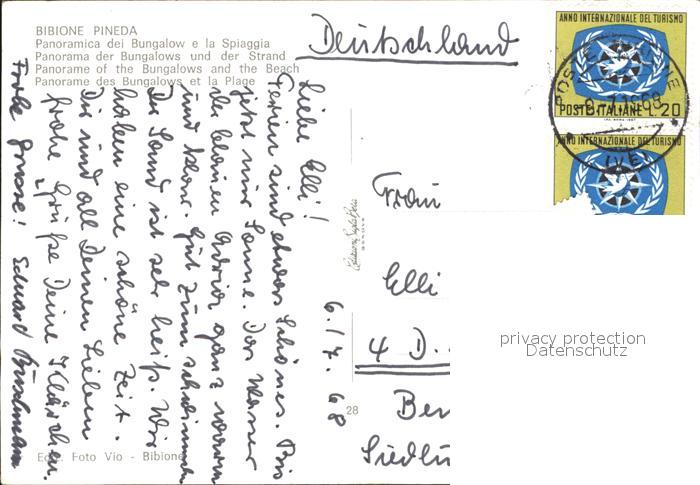 BIBIONE PINEDA
Panoramica dei Bungalow e la Spiaggia
Panorama der Bungalows und der Strand
Panorame of the Bungalows and the Beach
Panorame des Bungalows et la Plage
Deutschland
ANNO INTERNAZIONALE DEL TURISMO
POSTE ITALIANE L. 20
ANNO INTERNAZIONALE DEL TURISMO
6./7. 68
Liebe Elli!
Ferien sind etwas Schönes. Bis
jetzt nur Sonne. Das Wasser
der blauen Adria ganz warm
und klar. Gut zum schwimmen
Der Sand ist sehr heiß. Wir
haben eine schöne Zeit.
Dir und all Deinen Lieben
frohe Grüße Deine Klärchen.
Frohe Grüsse! Eduard
Frau
Elli
4 D.
Ber
Siedlu
28
privacy protection
Datenschutz
Ediz. Foto Vio - Bibione